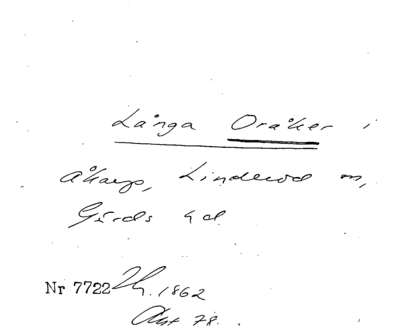 Långa Oråker i
Åkarp, Linderöd sn,
Gärds hd.
Nr 7722 1862
Akt 78.